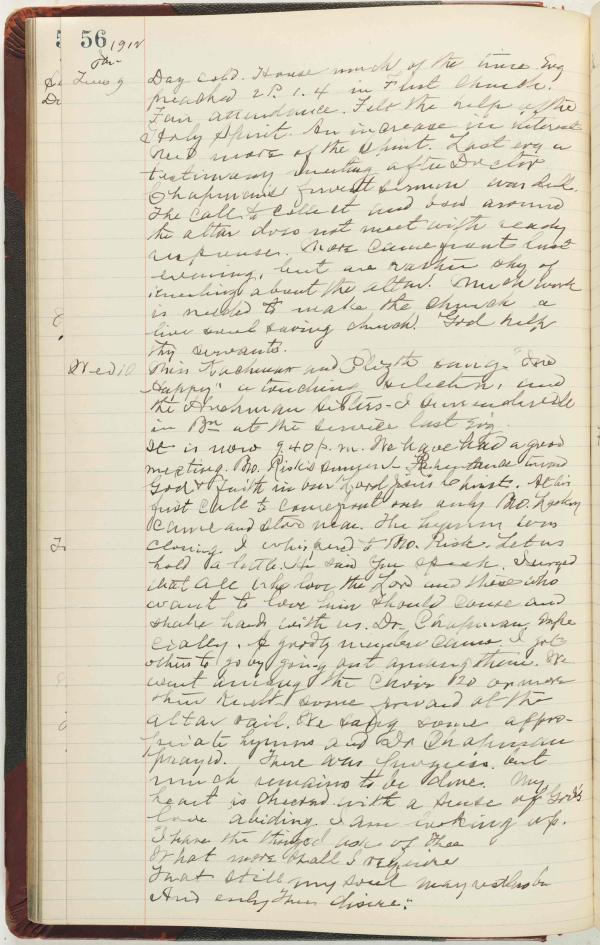 56 1912
Jan
Tues 9 Day cold. House much of the time. Evg
preached 2 P. 1.4 in First Church.
Fair attendance. Felt the help of the
Holy Spirit. An increase in interest
and more of the Spirit. Last evg a
testimony meeting after Doctor
Chapmans sermon was dull.
The call to collect and bow around
the altar does not meet with ready
responses. More came front last
evening, but are rather shy of
kneeling about the altar. Much work
is needed to make the church a
live soul saving church. God help
thy servants.
Wed 10 Miss and sang "
Happy" a touching selection, and
the sisters - I surrender all
in Bm at the service last Evg.
It is now 9.40 p.m. We have had a good
meeting. Bro. Risk's sermon Repentance toward
God & Faith in our Lord Jesus Christ. At his
first call to come front one only Bro.
came and stood near. The hymn was
closing. I whispered to Bro. Risk. Let us
hold a little. He said You speak. I urged
that all who love the Lord and those who
want to love him should come and
shake hands with us. Dr. Chapman, Espe
cially. A goodly number came. I got
others to go by going out among them. We
went among the choir 20 or more
then knelt some forward at the
altar rail. We sang some appro-
priate hymns and Dr Chapman
prayed. There was progress but
much remains to be done. My
heart is cheered with a sense of God's
love abiding. I am looking up.
I have the things I ask of Thee
What more shall I require
That still my soul may restless be
And only Thee desire."